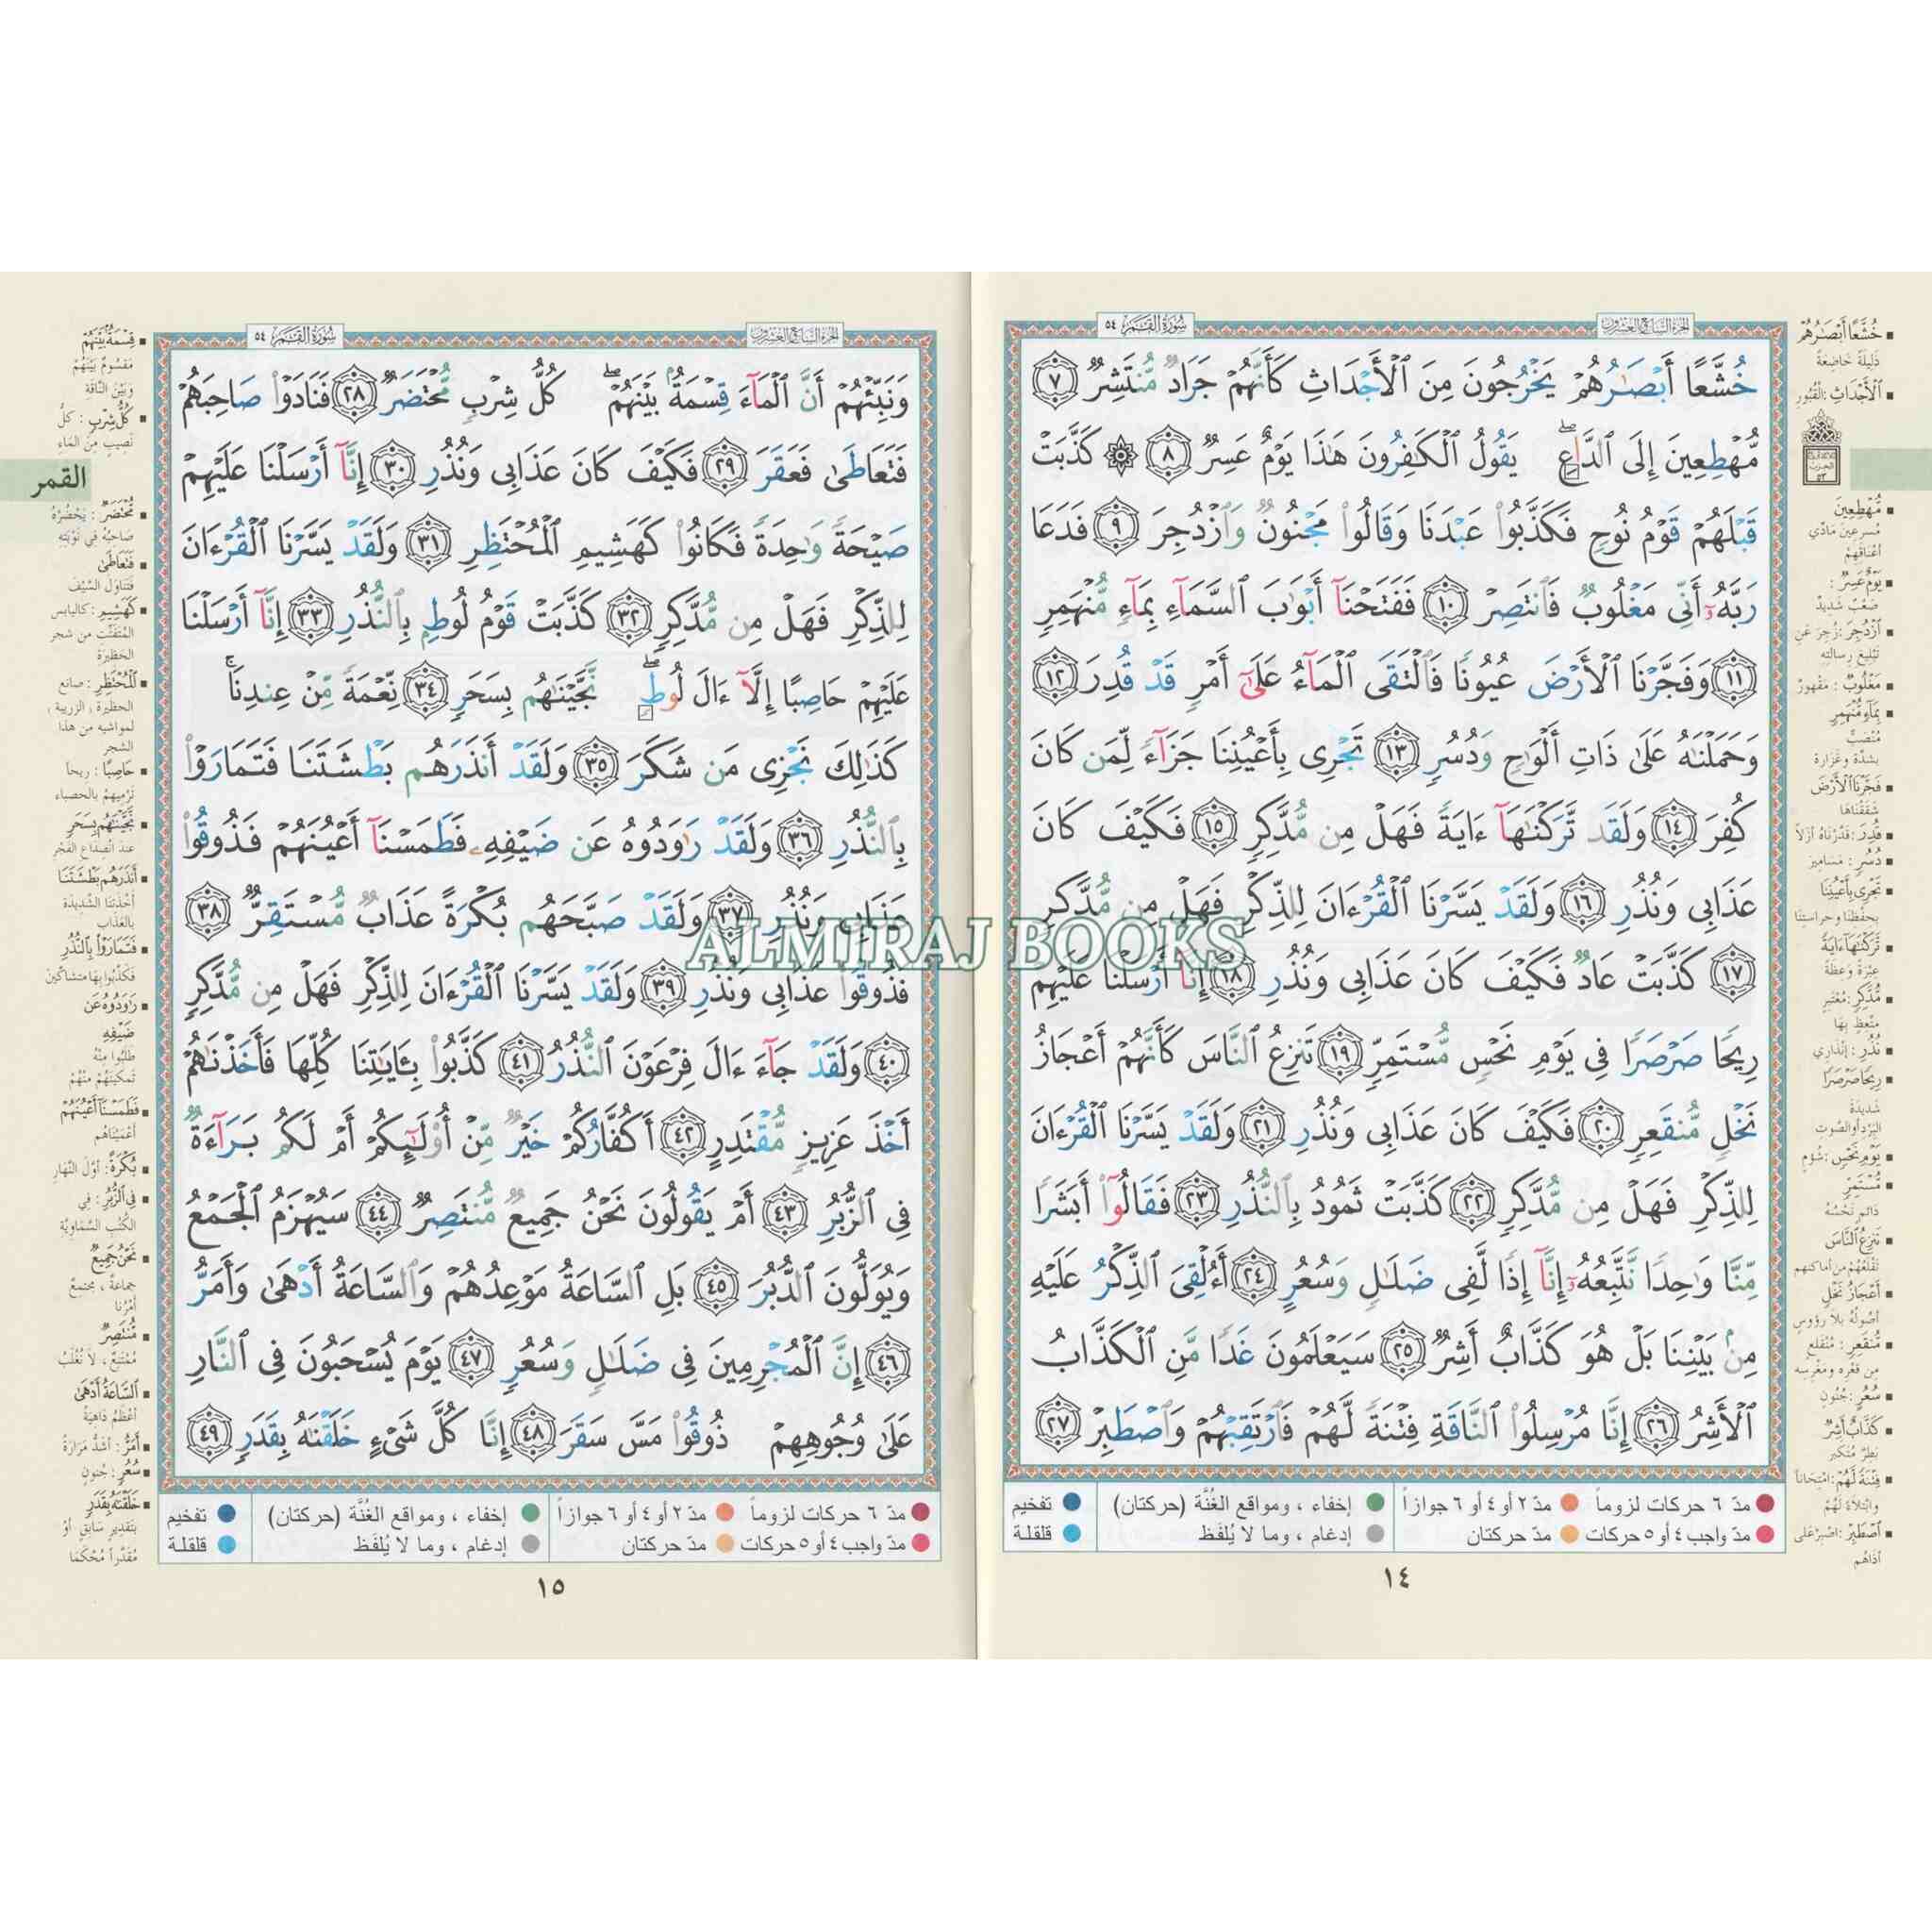 الجزء السابع والعشرون
سورة القمر ٥٤
خُشَّعًا أَبْصَٰرُهُمْ يَخْرُجُونَ مِنَ ٱلْأَجْدَاثِ كَأَنَّهُمْ جَرَادٌ مُّنتَشِرٌ ٧
مُّهْطِعِينَ إِلَى ٱلدَّاعِ ۖ يَقُولُ ٱلْكَٰفِرُونَ هَٰذَا يَوْمٌ عَسِرٌ ٨ ۞ كَذَّبَتْ
قَبْلَهُمْ قَوْمُ نُوحٍ فَكَذَّبُوا۟ عَبْدَنَا وَقَالُوا۟ مَجْنُونٌ وَٱزْدُجِرَ ٩ فَدَعَا
رَبَّهُۥٓ أَنِّى مَغْلُوبٌ فَٱنتَصِرْ ١٠ فَفَتَحْنَآ أَبْوَٰبَ ٱلسَّمَآءِ بِمَآءٍ مُّنْهَمِرٍ
١١ وَفَجَّرْنَا ٱلْأَرْضَ عُيُونًا فَٱلْتَقَى ٱلْمَآءُ عَلَىٰٓ أَمْرٍ قَدْ قُدِرَ ١٢
وَحَمَلْنَٰهُ عَلَىٰ ذَاتِ أَلْوَٰحٍ وَدُسُرٍ ١٣ تَجْرِى بِأَعْيُنِنَا جَزَآءً لِّمَن كَانَ
كُفِرَ ١٤ وَلَقَد تَّرَكْنَٰهَآ ءَايَةً فَهَلْ مِن مُّدَّكِرٍ ١٥ فَكَيْفَ كَانَ
عَذَابِى وَنُذُرِ ١٦ وَلَقَدْ يَسَّرْنَا ٱلْقُرْءَانَ لِلذِّكْرِ فَهَلْ مِن مُّدَّكِرٍ
١٧ كَذَّبَتْ عَادٌ فَكَيْفَ كَانَ عَذَابِى وَنُذُرِ ١٨ إِنَّآ أَرْسَلْنَا عَلَيْهِمْ
رِيحًا صَرْصَرًا فِى يَوْمِ نَحْسٍ مُّسْتَمِرٍّ ١٩ تَنزِعُ ٱلنَّاسَ كَأَنَّهُمْ أَعْجَازُ
نَخْلٍ مُّنقَعِرٍ ٢٠ فَكَيْفَ كَانَ عَذَابِى وَنُذُرِ ٢١ وَلَقَدْ يَسَّرْنَا ٱلْقُرْءَانَ
لِلذِّكْرِ فَهَلْ مِن مُّدَّكِرٍ ٢٢ كَذَّبَتْ ثَمُودُ بِٱلنُّذُرِ ٢٣ فَقَالُوٓا۟ أَبَشَرًا
مِّنَّا وَٰحِدًا نَّتَّبِعُهُۥٓ إِنَّآ إِذًا لَّفِى ضَلَٰلٍ وَسُعُرٍ ٢٤ أَءُلْقِىَ ٱلذِّكْرُ عَلَيْهِ
مِنۢ بَيْنِنَا بَلْ هُوَ كَذَّابٌ أَشِرٌ ٢٥ سَيَعْلَمُونَ غَدًا مَّنِ ٱلْكَذَّابُ
ٱلْأَشِرُ ٢٦ إِنَّا مُرْسِلُوا۟ ٱلنَّاقَةِ فِتْنَةً لَّهُمْ فَٱرْتَقِبْهُمْ وَٱصْطَبِرْ ٢٧
مدّ ٦ حركات لزوماً مدّ ٢ أو ٤ أو ٦ جوازاً إخفاء ، ومواقع الغُنَّة (حركتان) تفخيم
مدّ واجب ٤ أو ٥ حركات مدّ حركتان إدغام ، وما لا يُلفَظ قلقلة
١٤
خُشَّعًا أَبْصَٰرُهُمْ
ذَلِيلَةً خَاضِعَةً
ٱلْأَجْدَاثِ : القُبُورِ
مُّهْطِعِينَ
مُسرِعِينَ مَادِّي
أعْنَاقِهِمْ
يَوْمٌ عَسِرٌ :
صَعْبٌ شَدِيدٌ
ٱزْدُجِرَ : زُجِرَ عَنِ
تَبْلِيغِ رِسالتِهِ
مَغْلُوبٌ : مَقْهُورٌ
بِمَآءٍ مُّنْهَمِرٍ
مُنْصَبٍّ
بشدَّةٍ وغَزارةٍ
فَجَّرْنَا ٱلْأَرْضَ
شَقَقْنَاهَا
قُدِرَ : قَدَّرْنَاهُ أزَلاً
دُسُرٍ : مَسَامِيرَ
تَجْرِى بِأَعْيُنِنَا
بِحِفْظِنَا وحِراسَتِنَا
تَّرَكْنَٰهَآ ءَايَةً
عِبْرَةً وَعِظَةً
مُّدَّكِرٍ : مُعْتَبِرٍ
مُتَّعِظٍ بِهَا
نُذُرِ : إنْذَارِي
رِيحًا صَرْصَرًا
شَدِيدَةَ
البَرْدِ أو الصَّوتِ
يَوْمِ نَحْسٍ : شُؤمٍ
مُّسْتَمِرٍّ
دَائِمٍ نَحْسُهُ
تَنزِعُ ٱلنَّاسَ
تَقْلَعُهُمْ من أماكنهم
أَعْجَازُ نَخْلٍ
أصُولُهُ بلا رؤوسٍ
مُّنقَعِرٍ : مُنْقَلِعٍ
مِن قَعْرِهِ ومَغْرِسِهِ
سُعُرٍ : جُنُونٍ
كَذَّابٌ أَشِرٌ
بَطِرٌ مُتَكَبِّر
فِتْنَةً لَّهُمْ : امْتِحاناً
وابْتِلاءً لَهُمْ
ٱصْطَبِرْ : اصْبِرْ عَلى
أذَاهُم
الجزء السابع والعشرون
سورة القمر ٥٤
وَنَبِّئْهُمْ أَنَّ ٱلْمَآءَ قِسْمَةٌۢ بَيْنَهُمْ ۖ كُلُّ شِرْبٍ مُّحْتَضَرٌ ٢٨ فَنَادَوْا۟ صَاحِبَهُمْ
فَتَعَاطَىٰ فَعَقَرَ ٢٩ فَكَيْفَ كَانَ عَذَابِى وَنُذُرِ ٣٠ إِنَّآ أَرْسَلْنَا عَلَيْهِمْ
صَيْحَةً وَٰحِدَةً فَكَانُوا۟ كَهَشِيمِ ٱلْمُحْتَظِرِ ٣١ وَلَقَدْ يَسَّرْنَا ٱلْقُرْءَانَ
لِلذِّكْرِ فَهَلْ مِن مُّدَّكِرٍ ٣٢ كَذَّبَتْ قَوْمُ لُوطٍۭ بِٱلنُّذُرِ ٣٣ إِنَّآ أَرْسَلْنَا
عَلَيْهِمْ حَاصِبًا إِلَّآ ءَالَ لُوطٍ ۖ نَّجَّيْنَٰهُم بِسَحَرٍ ٣٤ نِّعْمَةً مِّنْ عِندِنَا ۚ
كَذَٰلِكَ نَجْزِى مَن شَكَرَ ٣٥ وَلَقَدْ أَنذَرَهُم بَطْشَتَنَا فَتَمَارَوْا۟
بِٱلنُّذُرِ ٣٦ وَلَقَدْ رَٰوَدُوهُ عَن ضَيْفِهِۦ فَطَمَسْنَآ أَعْيُنَهُمْ فَذُوقُوا۟
عَذَابِى وَنُذُرِ ٣٧ وَلَقَدْ صَبَّحَهُم بُكْرَةً عَذَابٌ مُّسْتَقِرٌّ ٣٨
فَذُوقُوا۟ عَذَابِى وَنُذُرِ ٣٩ وَلَقَدْ يَسَّرْنَا ٱلْقُرْءَانَ لِلذِّكْرِ فَهَلْ مِن مُّدَّكِرٍ
٤٠ وَلَقَدْ جَآءَ ءَالَ فِرْعَوْنَ ٱلنُّذُرُ ٤١ كَذَّبُوا۟ بِـَٔايَٰتِنَا كُلِّهَا فَأَخَذْنَٰهُمْ
أَخْذَ عَزِيزٍ مُّقْتَدِرٍ ٤٢ أَكُفَّارُكُمْ خَيْرٌ مِّنْ أُو۟لَٰٓئِكُمْ أَمْ لَكُم بَرَآءَةٌ
فِى ٱلزُّبُرِ ٤٣ أَمْ يَقُولُونَ نَحْنُ جَمِيعٌ مُّنتَصِرٌ ٤٤ سَيُهْزَمُ ٱلْجَمْعُ
وَيُوَلُّونَ ٱلدُّبُرَ ٤٥ بَلِ ٱلسَّاعَةُ مَوْعِدُهُمْ وَٱلسَّاعَةُ أَدْهَىٰ وَأَمَرُّ
٤٦ إِنَّ ٱلْمُجْرِمِينَ فِى ضَلَٰلٍ وَسُعُرٍ ٤٧ يَوْمَ يُسْحَبُونَ فِى ٱلنَّارِ
عَلَىٰ وُجُوهِهِمْ ذُوقُوا۟ مَسَّ سَقَرَ ٤٨ إِنَّا كُلَّ شَىْءٍ خَلَقْنَٰهُ بِقَدَرٍ ٤٩
مدّ ٦ حركات لزوماً مدّ ٢ أو ٤ أو ٦ جوازاً إخفاء ، ومواقع الغُنَّة (حركتان) تفخيم
مدّ واجب ٤ أو ٥ حركات مدّ حركتان إدغام ، وما لا يُلفَظ قلقلة
١٥
قِسْمَةٌۢ بَيْنَهُمْ
مَقسُومٌ بَيْنَهُمْ
وبَيْنَ النَّاقَةِ
كُلُّ شِرْبٍ : كلُّ
نَصِيبٍ مِنَ المَاءِ
القمر
مُّحْتَضَرٌ : يَحْضُرُهُ
صَاحِبُهُ فِي نَوْبَتِهِ
فَتَعَاطَىٰ
فَتَناوَلَ السَّيْفَ
كَهَشِيمِ : كاليابسِ
المُتَفَتِّتِ من شجر
الحَظِيرَةِ
ٱلْمُحْتَظِرِ : صانع
الحظيرة ( الزريبة )
لمواشيه من هذا
الشجر
حَاصِبًا : ريحاً
تَرْمِيهِمْ بالحصباء
نَّجَّيْنَٰهُم بِسَحَرٍ
عندَ انْصِدَاعِ الفَجْرِ
أَنذَرَهُم بَطْشَتَنَا
أخْذَتَنَا الشَّدِيدَةَ
بالعَذَاب
فَتَمَارَوْا۟ بِٱلنُّذُرِ
فَكَذَّبُوا بِهَا متشاكِّينَ
رَٰوَدُوهُ عَن
ضَيْفِهِ
طَلَبُوا مِنْهُ
تَمكينَهُمْ مِنْهُمْ
فَطَمَسْنَآ أَعْيُنَهُمْ
أعْمَيْنَاهُم
بُكْرَةً : أوَّلَ النَّهَارِ
فِى ٱلزُّبُرِ : فِي
الكُتُبِ السَّمَاوِيَّةِ
نَحْنُ جَمِيعٌ
جماعةٌ ، مجتمعٌ
أمْرُنَا
مُّنتَصِرٌ
مُمْتَنِعٌ ، لا نُغْلَبُ
ٱلسَّاعَةُ أَدْهَىٰ
أعْظَمُ دَاهِيَةً
أَمَرُّ : أشَدُّ مَرَارَةً
سُعُرٍ : جُنونٍ
خَلَقْنَٰهُ بِقَدَرٍ
بتَقدِيرٍ سَابقٍ أوْ
مُقَدَّراً مُحْكَمَا
ALMIRAJ BOOKS